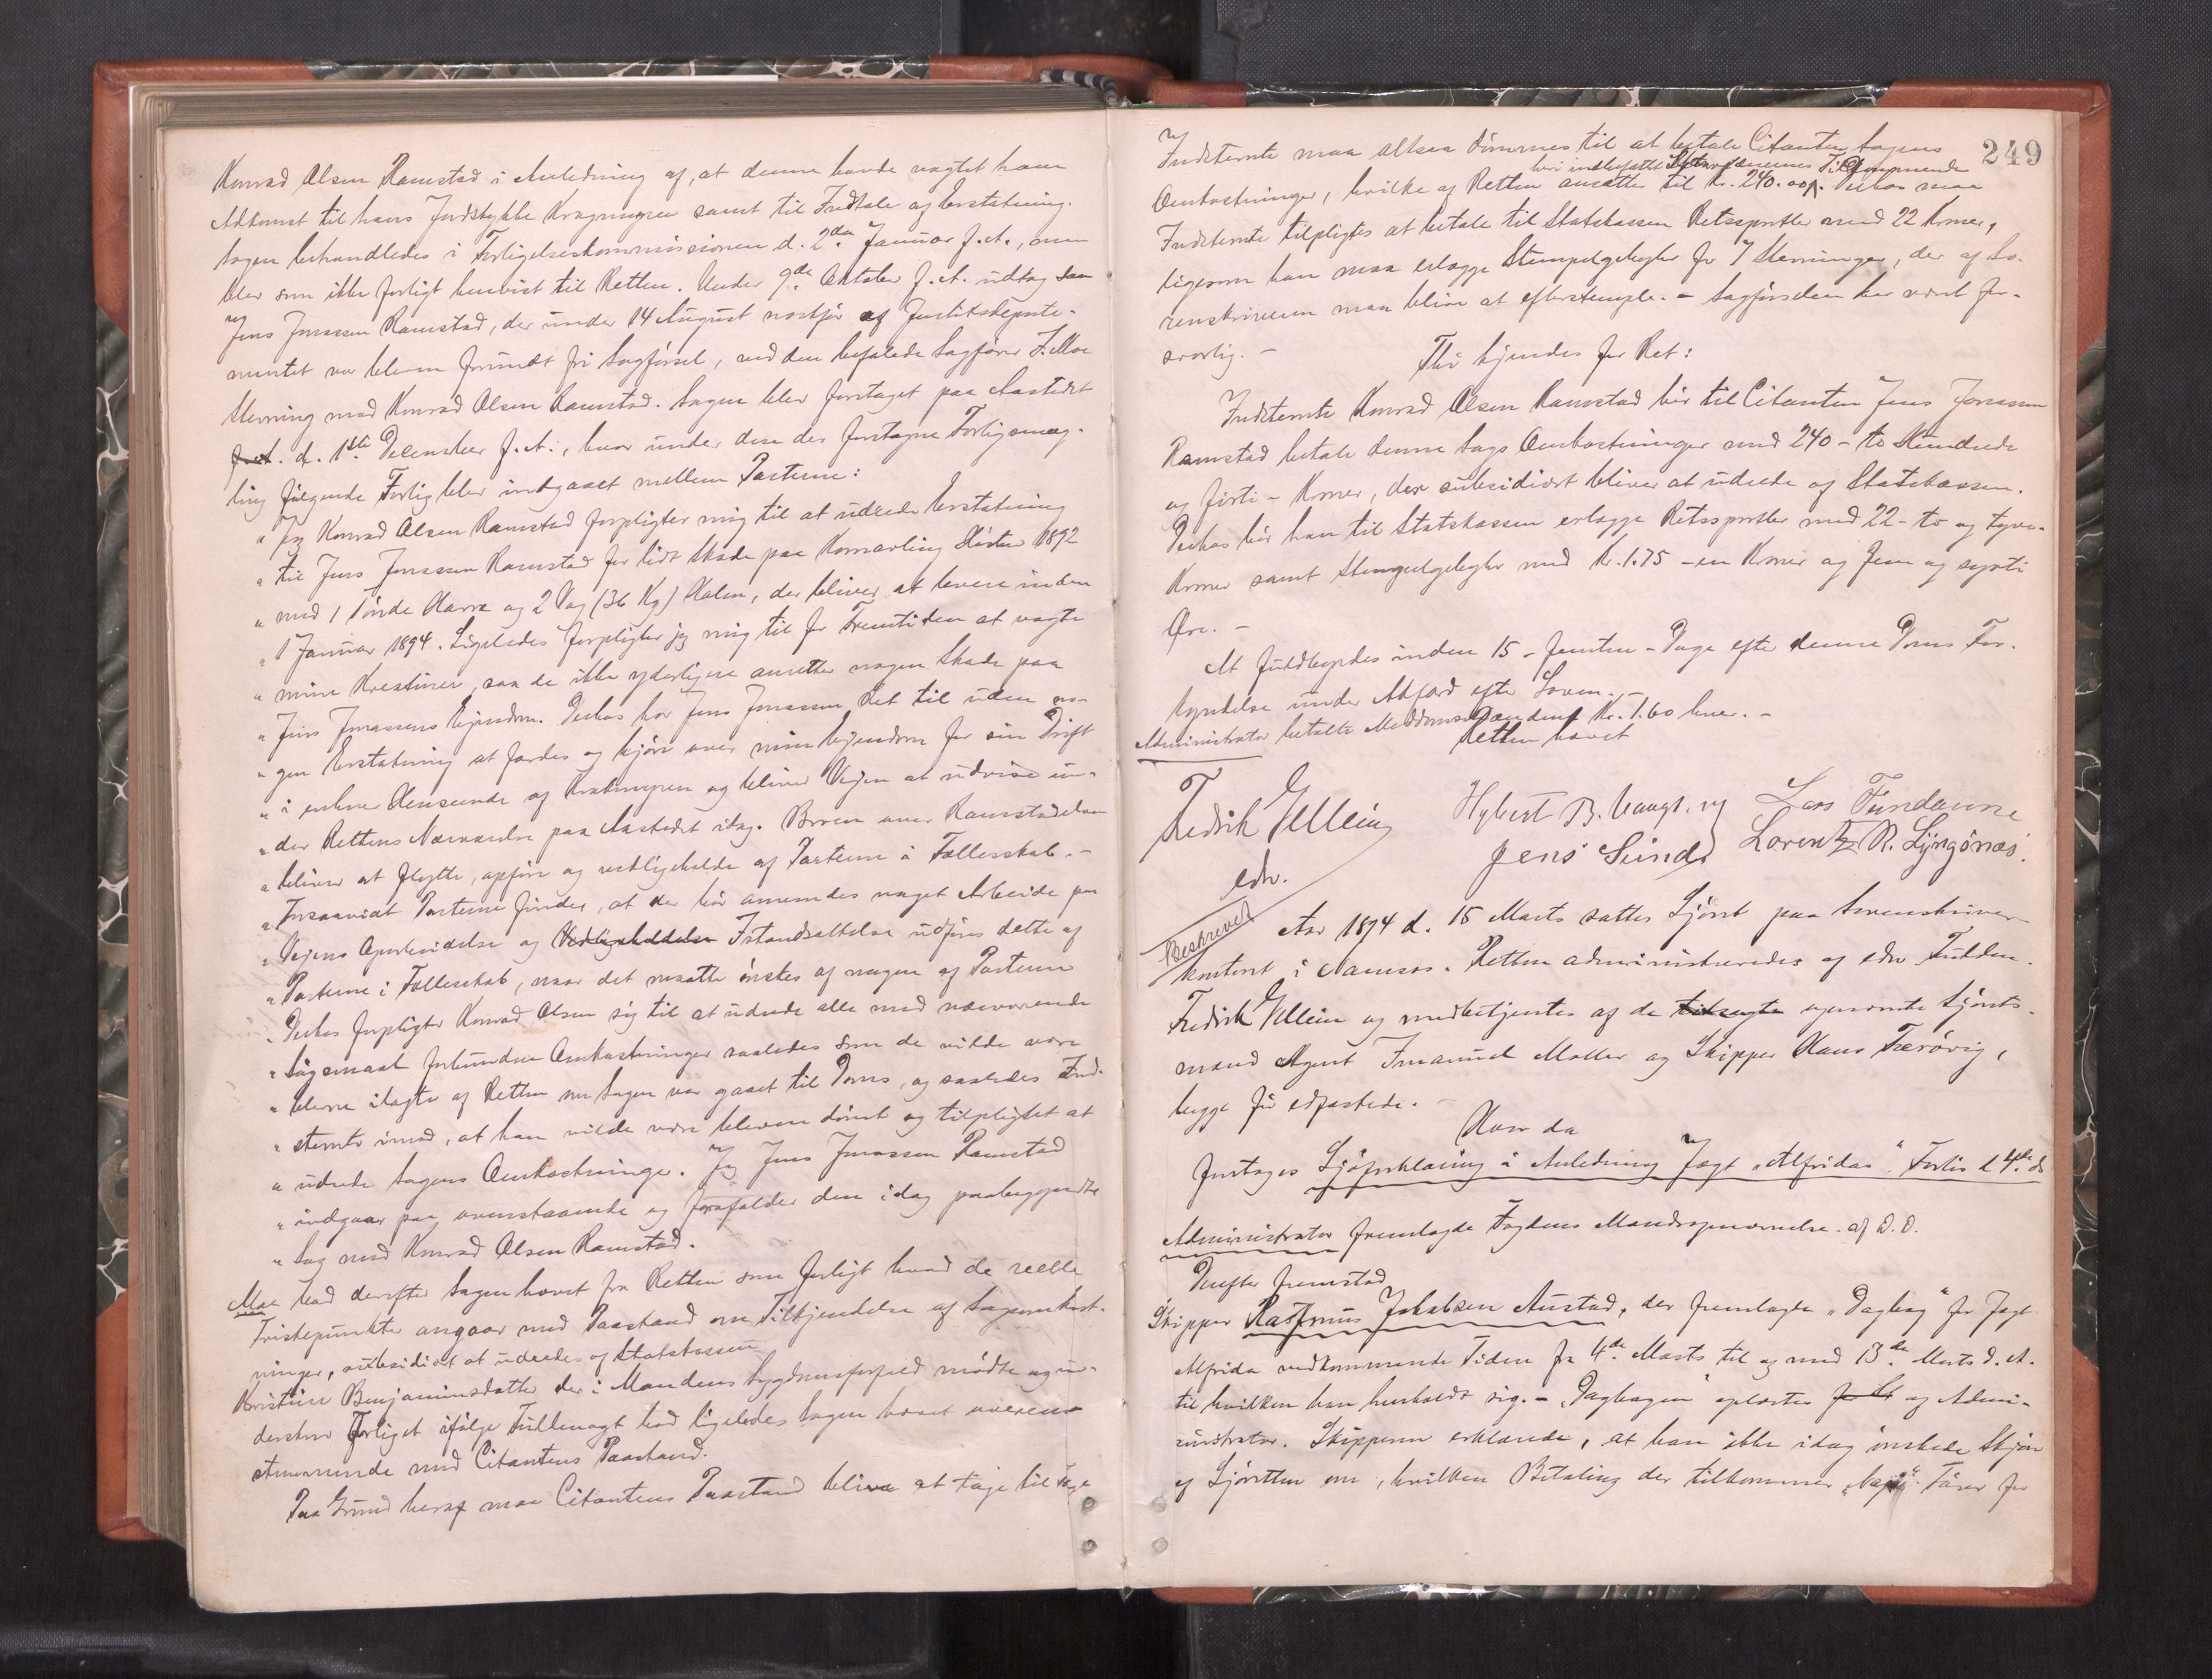 Konrad Olsen Ramstad i Anledning af, at denne havde nægtet ham
Adkomst til hans Jordstykke Kragmyren samt til Indtale og Erstatning.
Sagen behandledes i Forligelseskommissionen d. 2den Januar f. A., men
blev som ikke forligt henvist til Retten. Under 9de Oktober f. A. udtog
Jens Jonassen Ramstad, der under 14 August næstfør af Justitsdeparte-
mentet var bleven forundt fri Sagførsel, ved den befalede Sagfører F. Moe
Stevning mod Konrad Olsen Ramstad. Sagen blev foretaget paa Aastedet
d. 1ste December f. A., hvor under den der foretagne Forligsmæg-
ling følgende Forlig blev indgaaet mellem Parterne:
"Jeg Konrad Olsen Ramstad forpligter mig til at udrede Erstatning
" til Jens Jonassen Ramstad for lidt Skade paa Kornavling Høsten 1892
" med 1 Tønde Havre og 2 Vog (36 Kg) Halm, der bliver at levere inden
" 1 Januar 1894. Ligeledes forpligter jeg mig til for Fremtiden at vogte
" mine Kreaturer, saa de ikke yderligere anretter nogen Skade paa
" Jens Jonassens Eiendom. Derhos har Jens Jonassen Ret til uden no-
" gen Erstatning at færdes og kjøre over min Eiendom for sin Drift
" i enhver Henseende af Krakmyren og bliver Veien at udvise un-
" der Rettens Nærværelse paa Aastedet idag. Broen over Ramstadelven
" bliver at flytte, opføre og vedligeholde af Parterne i Fællesskab. -
" Forsaavidt Parterne finder, at der bør anvendes noget Arbeide paa
" Veiens Oparbeidelse og Vedligeholdelse Istandsættelse udføres dette af
" Parterne i Fællesskab, naar det maatte ønskes af nogen af Parterne
" Derhos forpligter Konrad Olsen sig til at udrede alle med nærværende
" Søgsmaal forbundne Omkostninger saaledes som de vilde være
" blevne ilagte af Retten om Sagen var gaaet til Doms, og saaledes Ind-
" stevnte imod, at han vilde være bleven dømt og tilpligtet at
" udrede Sagens Omkostninger. Jeg Jens Jonassen Ramstad
" indgaar paa ovenstaaende og frafalder den idag paabegyndte
" Sag mod Konrad Olsen Ramstad.
Moe bad derefter Sagen hævet fra Retten som forligt hvad de reelle
Tvistepunkter angaar med Paastand om Tilkjendelse af Sagsomkost-
ninger, subsidiært at udredes af Statskassen
Kristine Benjaminsdatter der i Mandens Sygdomsforfald mødte og un-
derskrev Forliget ifølge Fuldmagt bad ligeledes Sagen hævet overens-
stemmende med Citantens Paastand.
Paa Grund heraf maa Citantens Paastand blive at tage til Følge
249
Indstevnte maa altsaa dømmes til at betale Citanten Sagens
heri indbefattet Tilkommende
Omkostninger, hvilke af Retten ansættes til Kr. 240.00. Derhos maa
Indstevnte tilpligtes at betale til Statskassen Retssportler med 22 Kroner,
ligesom han maa erlægge Stempelgebyhr for 7 Stevninger, der af So-
renskriveren maa blive at efterstemple. - Sagførselen har været for-
svarlig. -
Thi kjendes for Ret:
Indstevnte Konrad Olsen Ramstad bør til Citanten Jens Jonassen
Ramstad betale denne Sags Omkostninger med 240 - to Hundrede
og firti - Kroner, der subsidiært bliver at udrede af Statskassen.
Derhos bør han til Statskassen erlægge Retssportler med 22 - to og tyve -
Kroner samt Stempelgebyhr med Kr. 1.75 - en Krone og fem og sytti
Øre. -
At fuldbyrdes inden 15 - femten - Dage efter denne Doms For-
kyndelse under Adfærd efter Loven. -
Administrator betalte Meddomsmændene Kr. 1.60 hver. -
Retten hævet
Fredrik Ellein
edsv.
Hybert B. Haugt, rg
Lars Tundanne
Jens Sund
Lorentz R. Lyngsnæs.
Beskrevet
Aar 1894 d. 15 Marts sattes Sjøret paa Sorenskriver-
kontoret i Namsos. Retten administreredes af edsv Fuldm.
Fredrik Ellein og medbetjentes af de tilsagte opnævnte Sjørets-
mænd Agent Imanuel Møller og Skipper Hans Færøvig,
begge før edfæstede. -
Hvor da
foretages Sjøforklaring i Anledning Jagt "Alfridas" Forlis d 4de ds
Administrator fremlagde Fogdens Mandsopnævnelse af D. D.
Derefter fremstod
Skipper Rasmus Jakobsen Austad, der fremlagte "Dagbog" for Jagt
Alfrida vedkommende Tiden fra 4de Marts til og med 13de Marts d. A.
til hvilken han henholdt sig. - "Dagbogen" oplæstes af Admi-
nistrator. Skipperen erklærede, at han ikke idag ønskede Skjøn
af Sjøretten om, hvilken Betaling der tilkommer Fører for